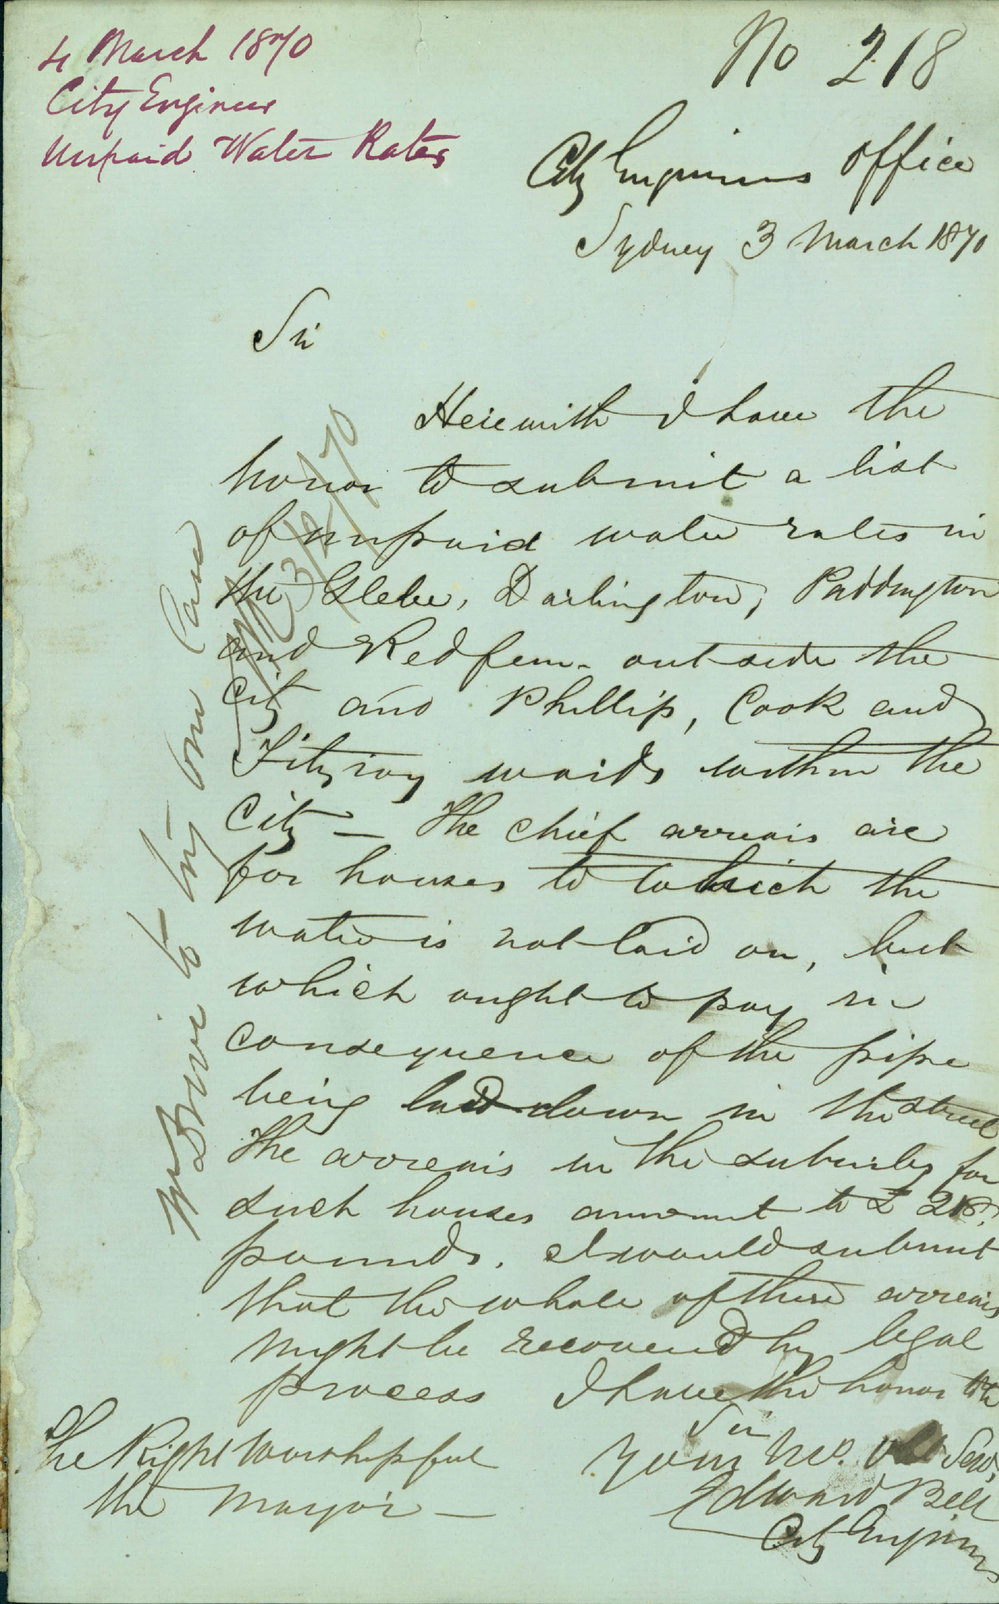 4 March 1870
City Engineer
Unpaid Water Rates
No 218
City Engineers Office
Sydney 3 March 1870
Sir
Herewith I have the
honor to submit a list
of unpaid water rates in
the Glebe, Darlington, Paddington
and Redfern - outside the
City and Phillip, Cook and
Fitzroy wards within the
City — The chief arrears are
for houses to which the
water is not laid on, but
which ought to pay in
consequence of the pipe
being laid down in the street
The arrears in the suburbs for
such houses amount to £ 218
pounds. I would submit
that the whole of these arrears
might be recovered by legal
process I have the honor to be
Sir
Your Mo. Obt Serv,
Edward Bell
City Engineer
The Right Worshipful
the Mayor —
3/2/70